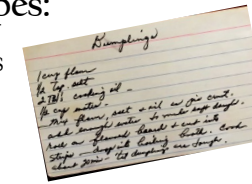 pes:
s
Dumplings
1 cup flour
½ tsp. salt
2 TBls cooking oil
½ cup water
Mix flour, salt & oil as pie crust.
add enough water to make soft dough.
Roll on floured board & cut into
strips - drop in boiling broth. Cook
about 20 min - 'til dumplings are tough.